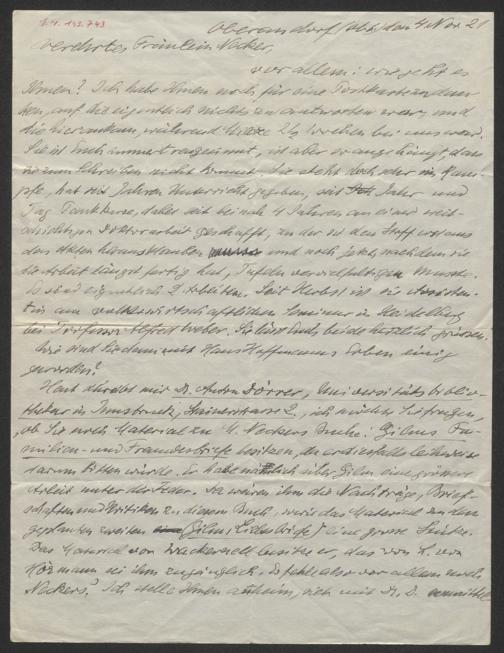 I.N. 193.743
Oberaudorf, den 4. Nov. 21
Verehrtes Fräulein Necker,
vor allem: wie geht es
Ihnen? Ich habe Ihnen noch für eine Postkarte zu dan-
ken, auf die eigentlich nichts zu antworten war, und
die hier ankam, während 2½ Wochen bei uns war.
Sie ist Euch immer treugesinnt, ist aber so angehängt, dass
sie zum Schreiben nicht kommt. Sie steht doch sehr im Kam-
pfe, hat seit Jahren Unterricht gegeben, seit Jahr und
Tag, dabei seit beinah 4 Jahren an einer weit-
schichtigen Doktorarbeit geschafft, zu der sie den Stoff erst aus
den Akten herausklauben und noch jetzt nachdem sie
die Arbeit längst fertig hat, Tafeln vervielfältigen musste.
Es sind eigentlich 2 Arbeiten. Seit Herbst ist sie Assisten-
tin am volkswirtschaftlichen Seminar in Heidelberg
bei Professor Alfred Weber. Sie lässt Euch beide herzlich grüssen.
Wie sind Sie denn mit Hans Hoffmanns Erben einig
geworden?
Heut schreibt mir Dr. Anton Dörrer, Universitätsbiblio-
thekar in Innsbruck, 2., ich möchte Sie fragen,
ob Sie noch Material zu M. Neckers Buche: Gilms Fa-
milien- und Freundesbriefe besitzen, da er diesfalls leihweise
darum bitten würde. Er habe nämlich über Gilm eine grössere
Arbeit unter der Feder. Da wären ihm die Nachträge, Brief-
schaften und Kritiken zu diesem Buch, wie das Material zu den
geplanten zweiten (Gilms Liebesbriefe) eine grosse Stütze.
Das Material von Wackernell besitze er, das von H. von
Hörmann sei ihm zugänglich. Es fehle also vor allem noch
Neckers. Ich stelle Ihnen anheim, sich mit Dr. D.